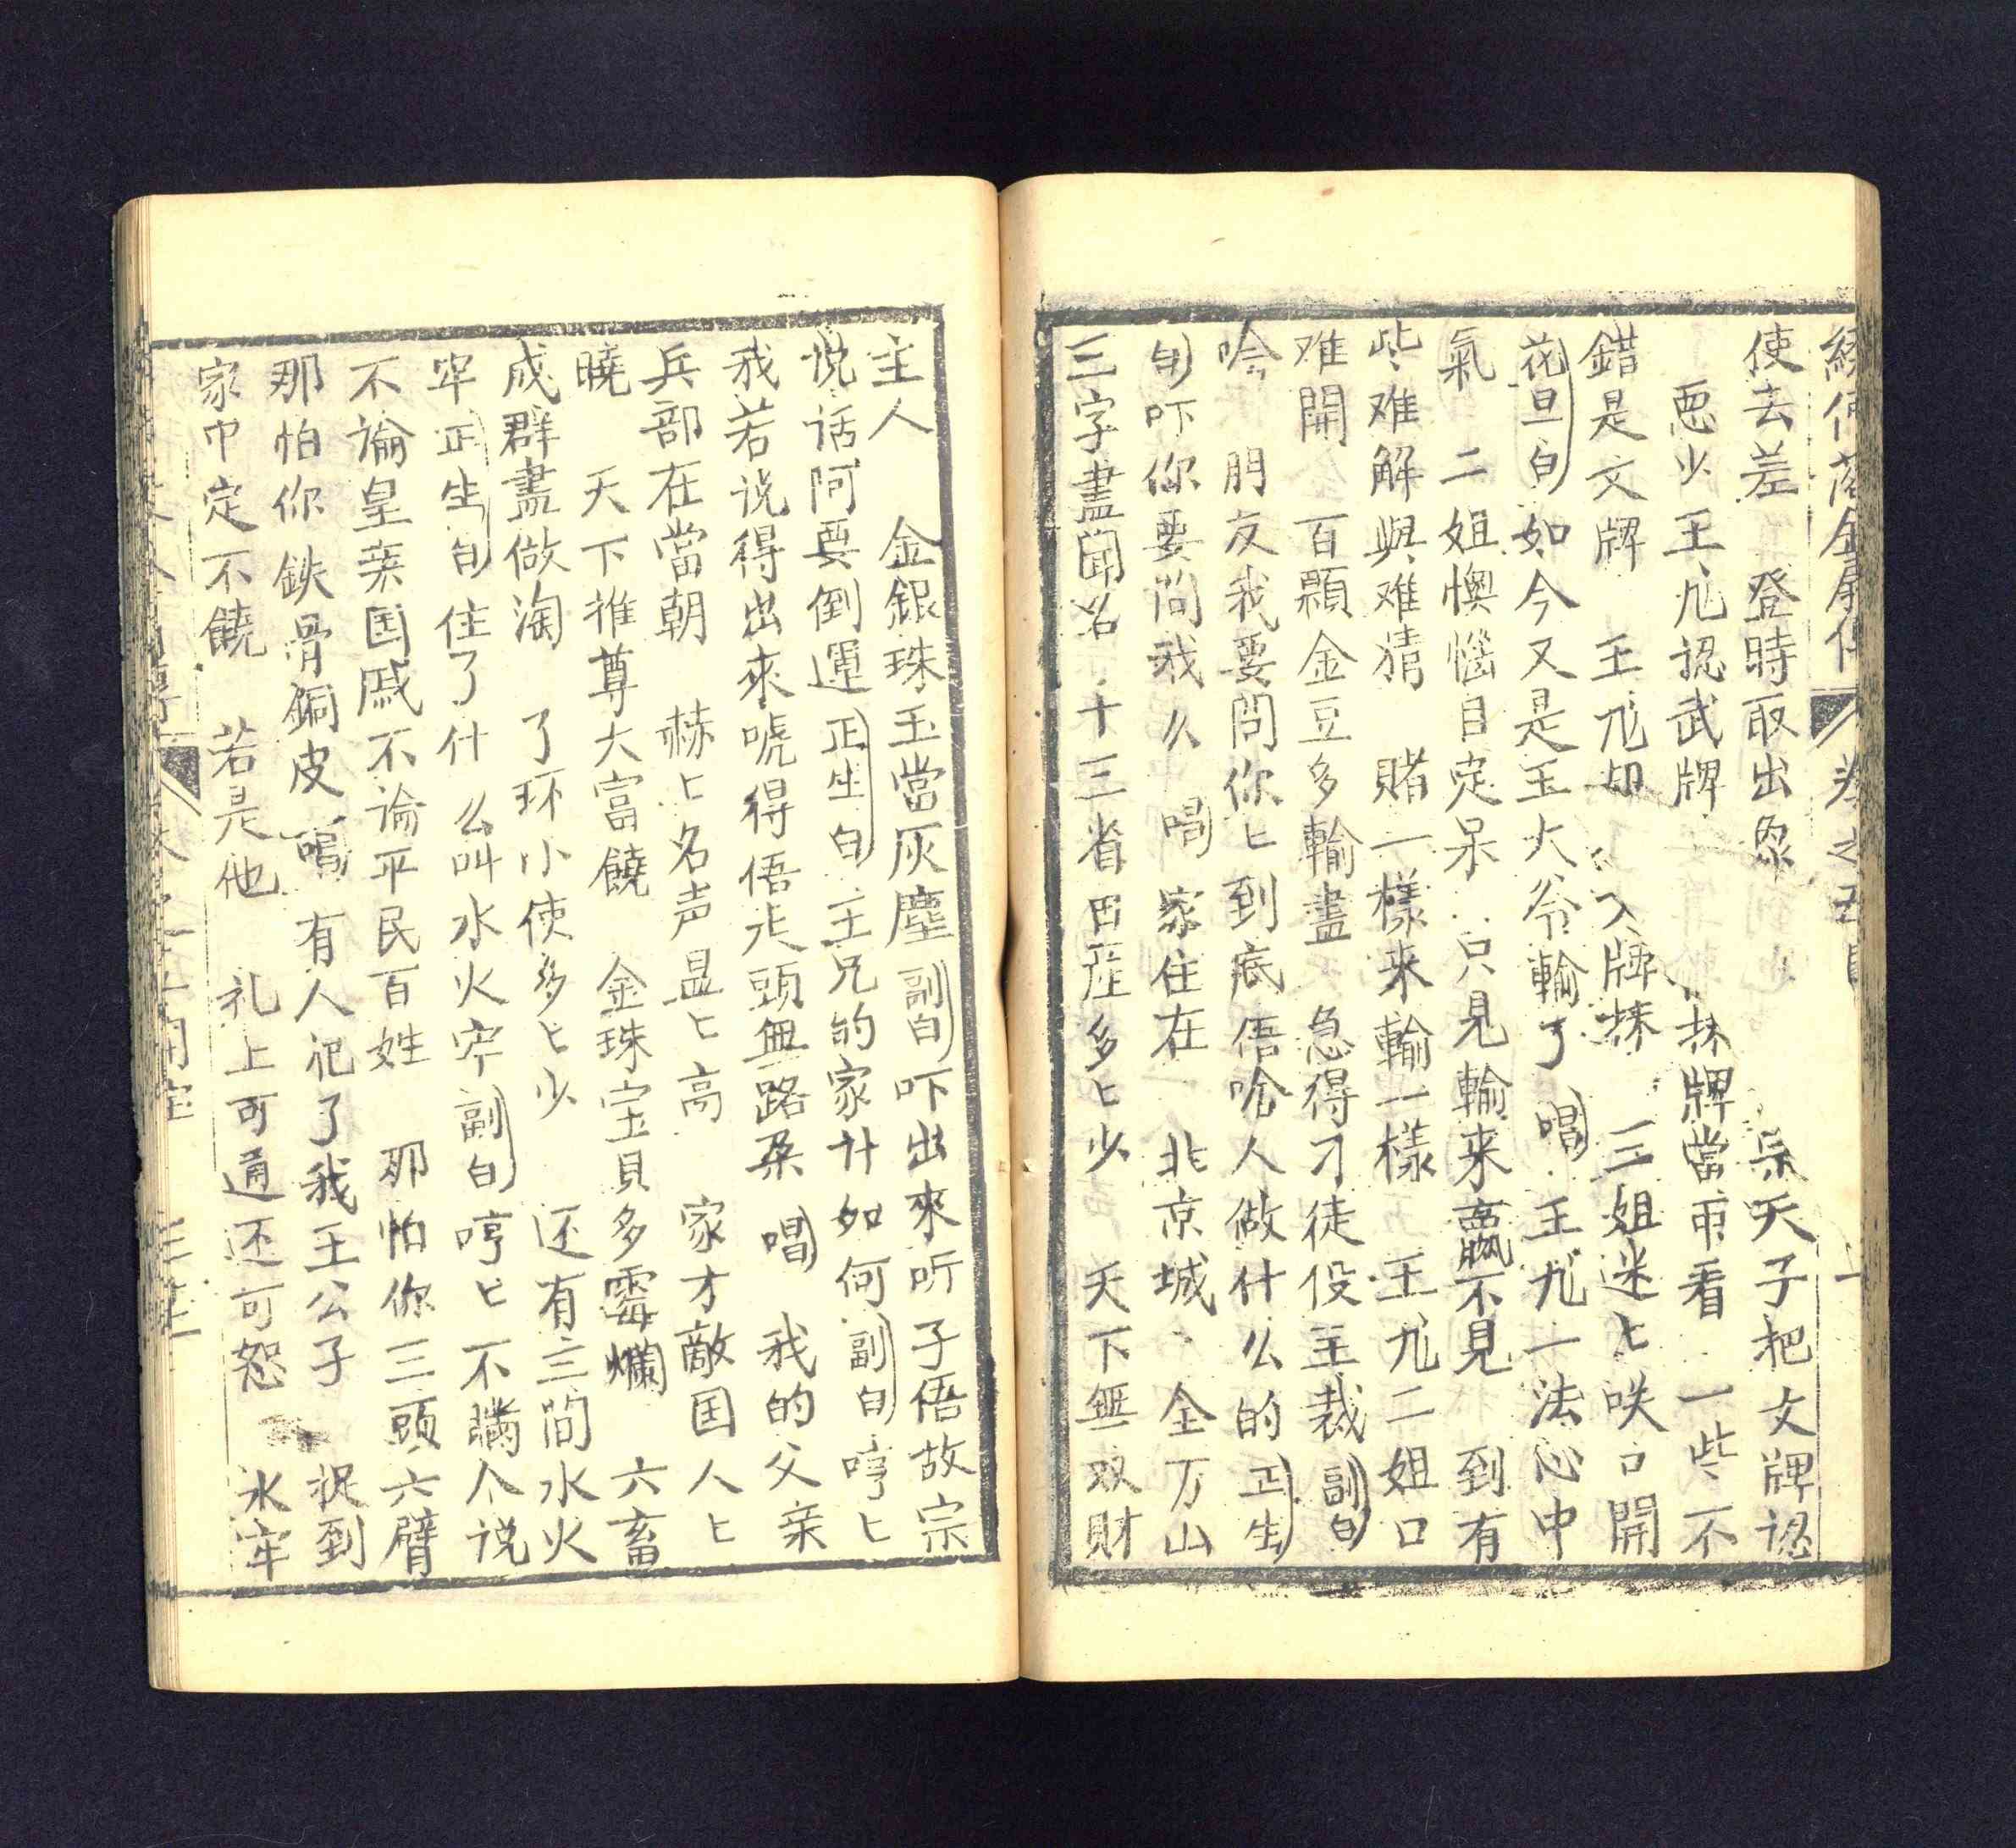 使去差 登時取出衆 宗天子把文牌認
惡少王尨認武牌 抹牌當市看 一些不
錯是文牌 王尨却 入牌抹 三姐迷匕咲口開
花旦白 如今又是王大爷輸了 唱 王尨一法心中
氣 二姐懊惱目定呆 只見輸来贏不見 到有
些难解與难猜 賭一樣来輸一樣 王尨二姐口
难開 百顆金豆多輸盡 急得刁徒役主裁 副白
唅 朋友我要问你匕到底俉唅人做什么的 正生
白 吓你要问我么 唱 家住在 北京城 全万山
三字盡闻名 十三省田産多匕少 天下無双財
主人 金銀珠玉當灰塵 副白 吓出來听子俉故宗
说话阿要倒運 正生白 王兄的家计如何 副白 哼匕
我若说得出來唬得俉上天頭無路朶 唱 我的父亲
兵部在當朝 赫匕名声显匕高 家才敵国人匕
曉 天下推尊大富饒 金珠宝貝多霉爛 六畜
成群盡做淘 了环小使多匕少 还有三间水火
牢 正生白 住了什么叫水火牢 副白 哼匕不瞒个说
不論皇亲国戚不论平民百姓 那怕你三頭六臂
那怕你鉄骨銅皮 唱 有人犯了我王公子 捉到
家中定不饒 若是他 礼上可通还可恕 水牢